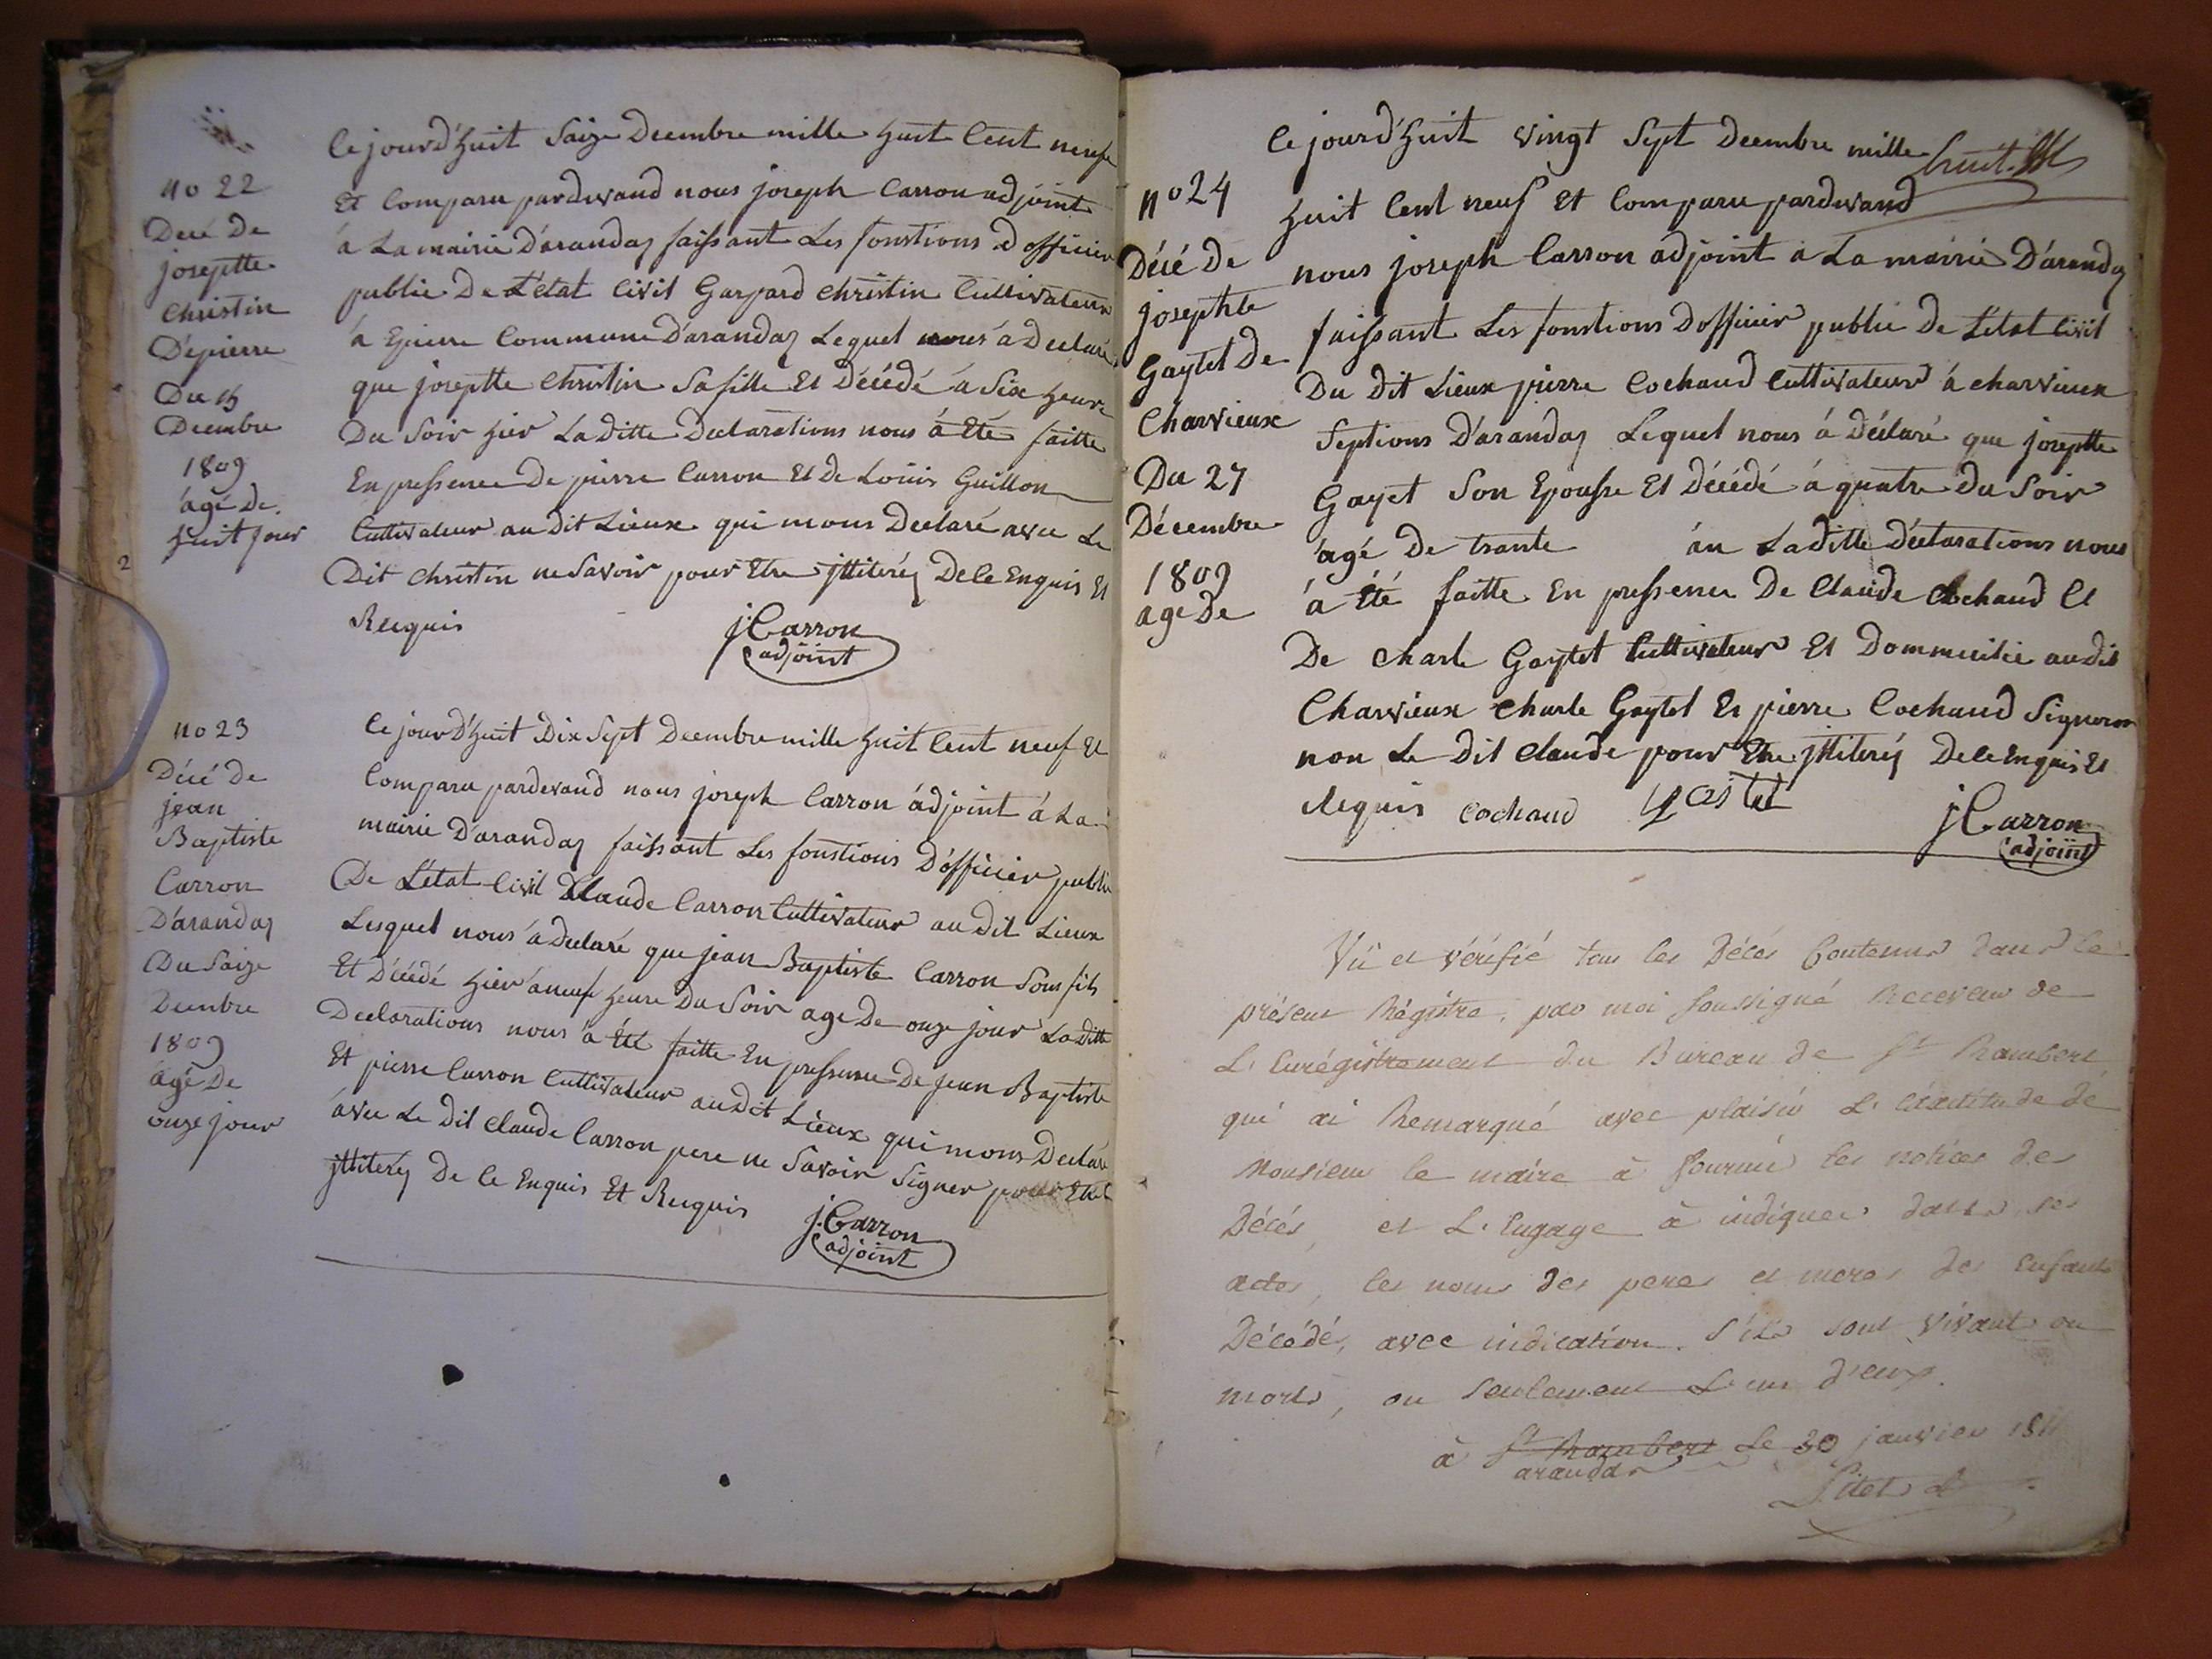 no 22
Decé de
joseptte
Christin
D'epierre
Du 15
Decembre
1809
âgé de
huit jour
Ce jourd'huit Saize Decembre mille huit Cent neufe
Et Comparu pardevand nous joseph Carron adjoint
á La mairie D'arandaz faissant Les fonstions d'officier
public De L'état Civil Gaspard Christin Cultivateur
á Epierre Commune D'arandaz Lequel nous á Declaré
que joseptte Christin Sa fille Et Décédé á Six heure
Du Soir hier La Ditte Declarations nous á Eté faitte
En pressence De pierre Carron Et de Loüis Guillon
Cultivateur au Dit Lieux qui mons Declaré avec Le
Dit Christin ne Savoir pour Etre jttiteréz De Ce Enquis Et
Requis
j Carron
adjoint
no 23
Décé de
jean
Baptiste
Carron
D'arandaz
Du Saize
Decembre
1809
âgé De
onze jour
Ce jourD'huit Dix Sept Decembre mille huit Cent neuf Et
Comparu pardevand nous joseph Carron ádjoint á La
mairie D'arandaz faissant Les fonstions D'officier public
De L'état Civil Claude Carron Cultivateur au Dit Lieux
Lesquel nous á Declaré que jean Baptiste Carron Son fils
Et Décédé hier á neufe heure Du Soir age De onze jour La Ditte
Declarations nous á Eté faitte En pressence De jean Baptiste
Et pierre Carron Cultivateur au Dit Lieux qui mons Declaré
ávec Le Dit Claude Carron pere ne Savoir Signer pour Etre
jttiteréz De Ce Enquis Et Requis
j. Carron
adjoint
no 24
Décé De
josephte
Gaytet De
Charvieux
Du 27
Décembre
1809
age De
Ce jourd'huit vingt Sept Decembre mille
huit Cent neuf Et Comparu pardevand
nous joseph Carron adjoint a La mairie D'arandaz
faissant Les fonstions D'officier public De L'état Civil
Du Dit Lieux pierre Cochaud Cultivateur á Charvieux
Septions D'arandaz Lequel nous á Déclaré que joseptte
Gayet Son Epousse Et Décédé á quatre Du Soir
âgé De trante án La ditte Déclarations nous
á Eté faitte En pressence De Claude Cochaud Et
De Charle Gaytet Cultivateur Et Dommicilié audit
Charvieux Charle Gaytet Et pierre Cochaud Signeron
non Le Dit Claude pour Etre jttiteréz De Ce Enquis Et
Requis Cochaud
j Carron
adjoint
Vû et vérifié tous les Décès Contenus dans le
présent Régistre, par moi Soussigné Receveur de
L'Enrégistrement du Bureau de St Rambert
qui ai Remarqué avec plaisir L'éxactitude de
Monsieur le maire à fournir les notices des
Décés, et L'Engage à indiquer dans les
actes, les noms des peres et meres des Enfants
Décédé, avec indication S'ils sont Vivant ou
morts, ou Seulement L'un d'eux.
à St Rambert Le 30 janvier 181
arandas